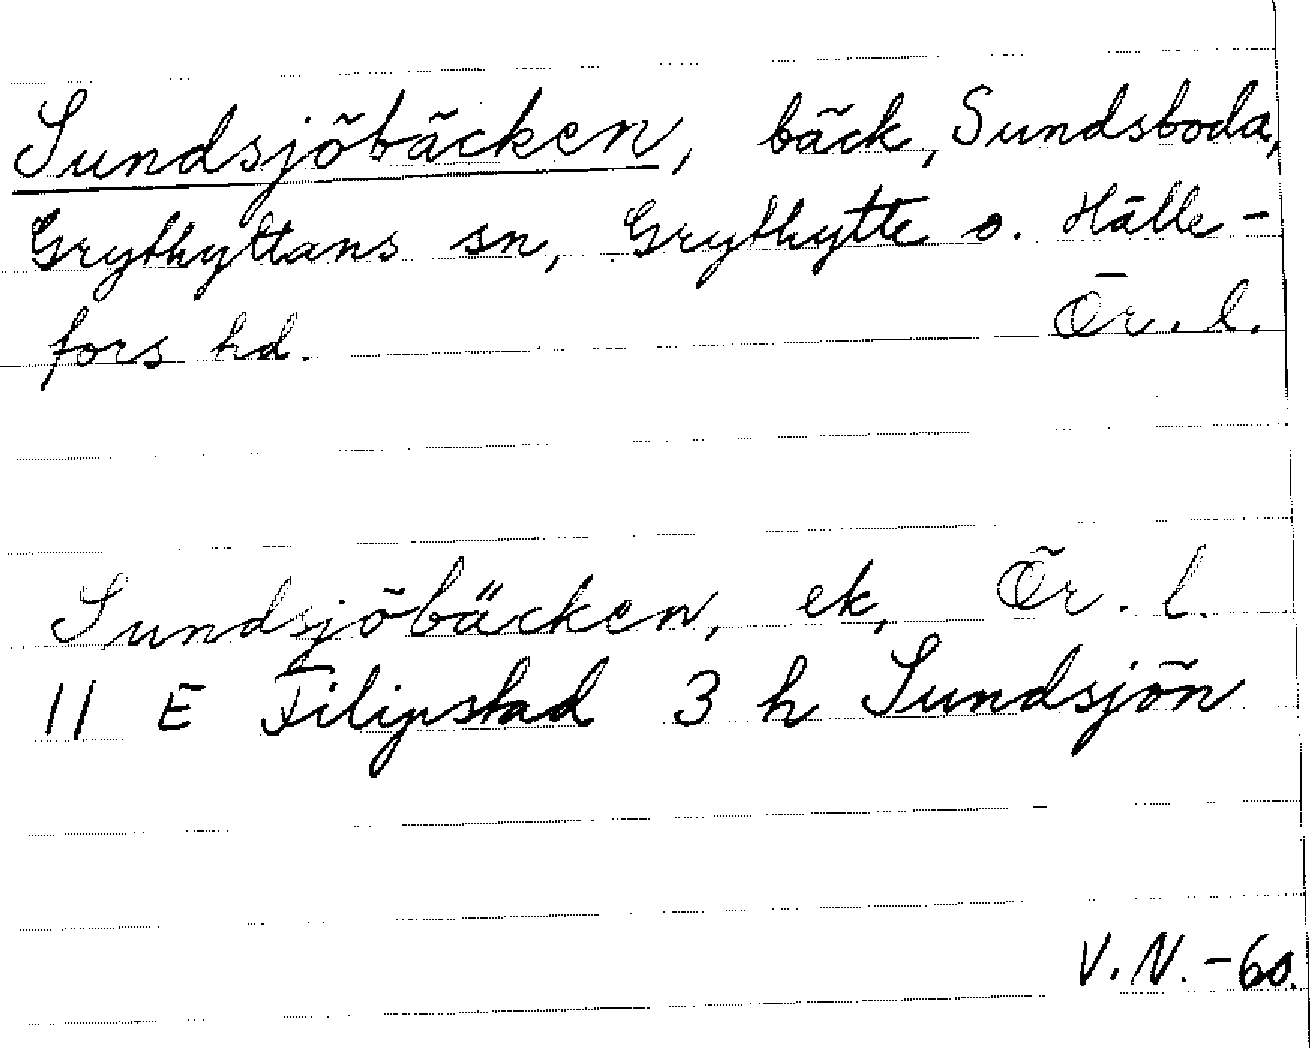 Sundsjöbäcken, bäck, Sundsboda,
Grythyttans sn, Grythytte o. Hälle-
fors hd. Ör. l.
Sundsjöbäcken, ek, Ör. l.
11 E Filipstad 3 h Sundsjön
V. N. -60.